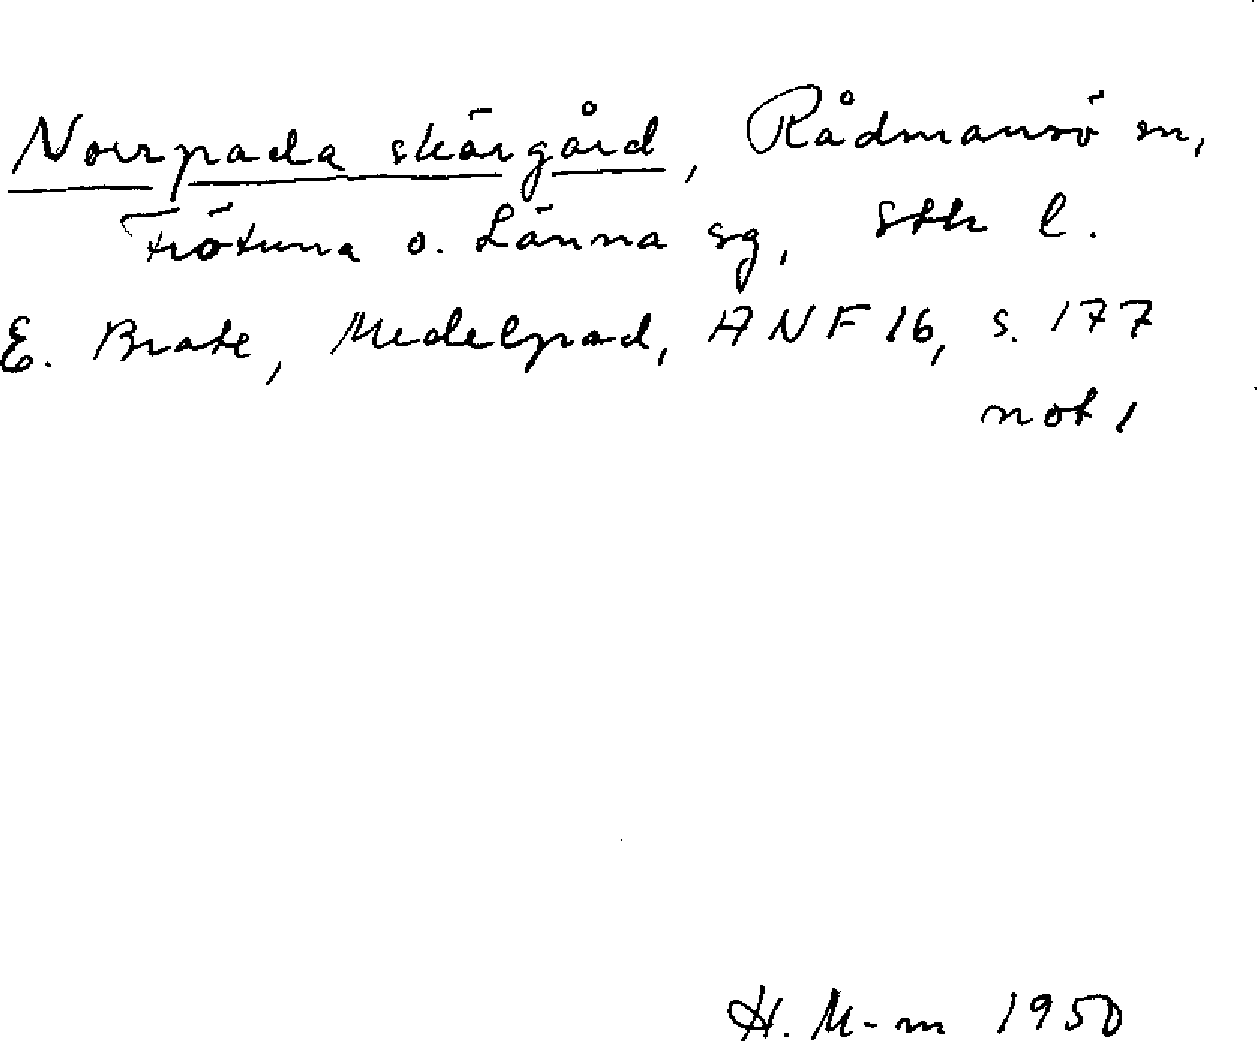 Norrpada skärgård, Rådmansö sn,
Frötuna o. Länna sg, Sthl l.
E. Brate, Medelpad, ANF 16, s. 177
not 1
H. M-m 1950